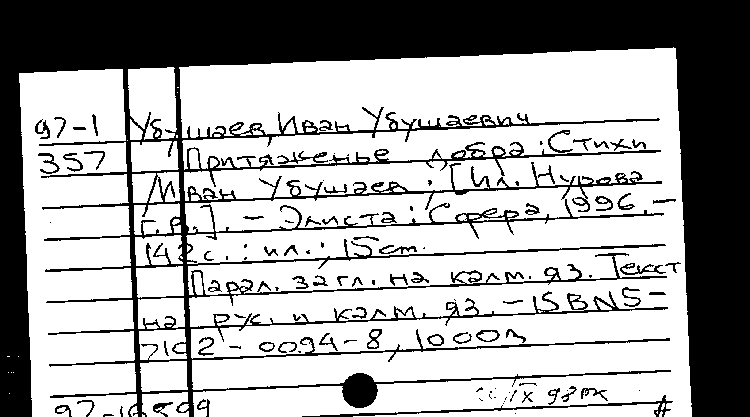 97-1 Убушаев, Иван Убушаевич
357 Притяженье добра : Стихи
Иван Убушаев ; [Ил. Нурова
Г.В.]. - Элиста : Сфера, 1996. -
142с. : ил. ; 15cm.
Парал. загл. на калм. яз. Текст
на рус. и калм. яз. - ISBN 5-
7102-0094-8, 1000э
97-16599 IX 98рк